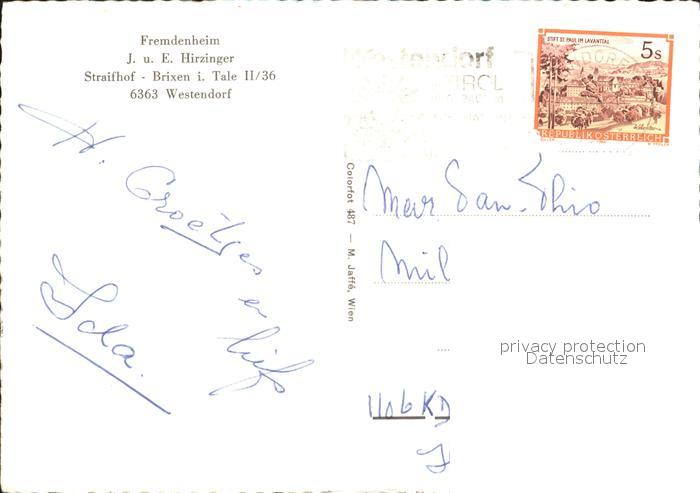 Fremdenheim
J. u. E. Hirzinger
Straifhof - Brixen i. Tale II/36
6363 Westendorf
H. Groetjes
en liefs
Ida.
Colorfot 487 — M. Jaffé, Wien
Westendorf
TIROL
STIFT ST. PAUL IM LAVANTTAL
5s
REPUBLIK ÖSTERREICH
Mevr. San
privacy protection
Datenschutz
1106 KD